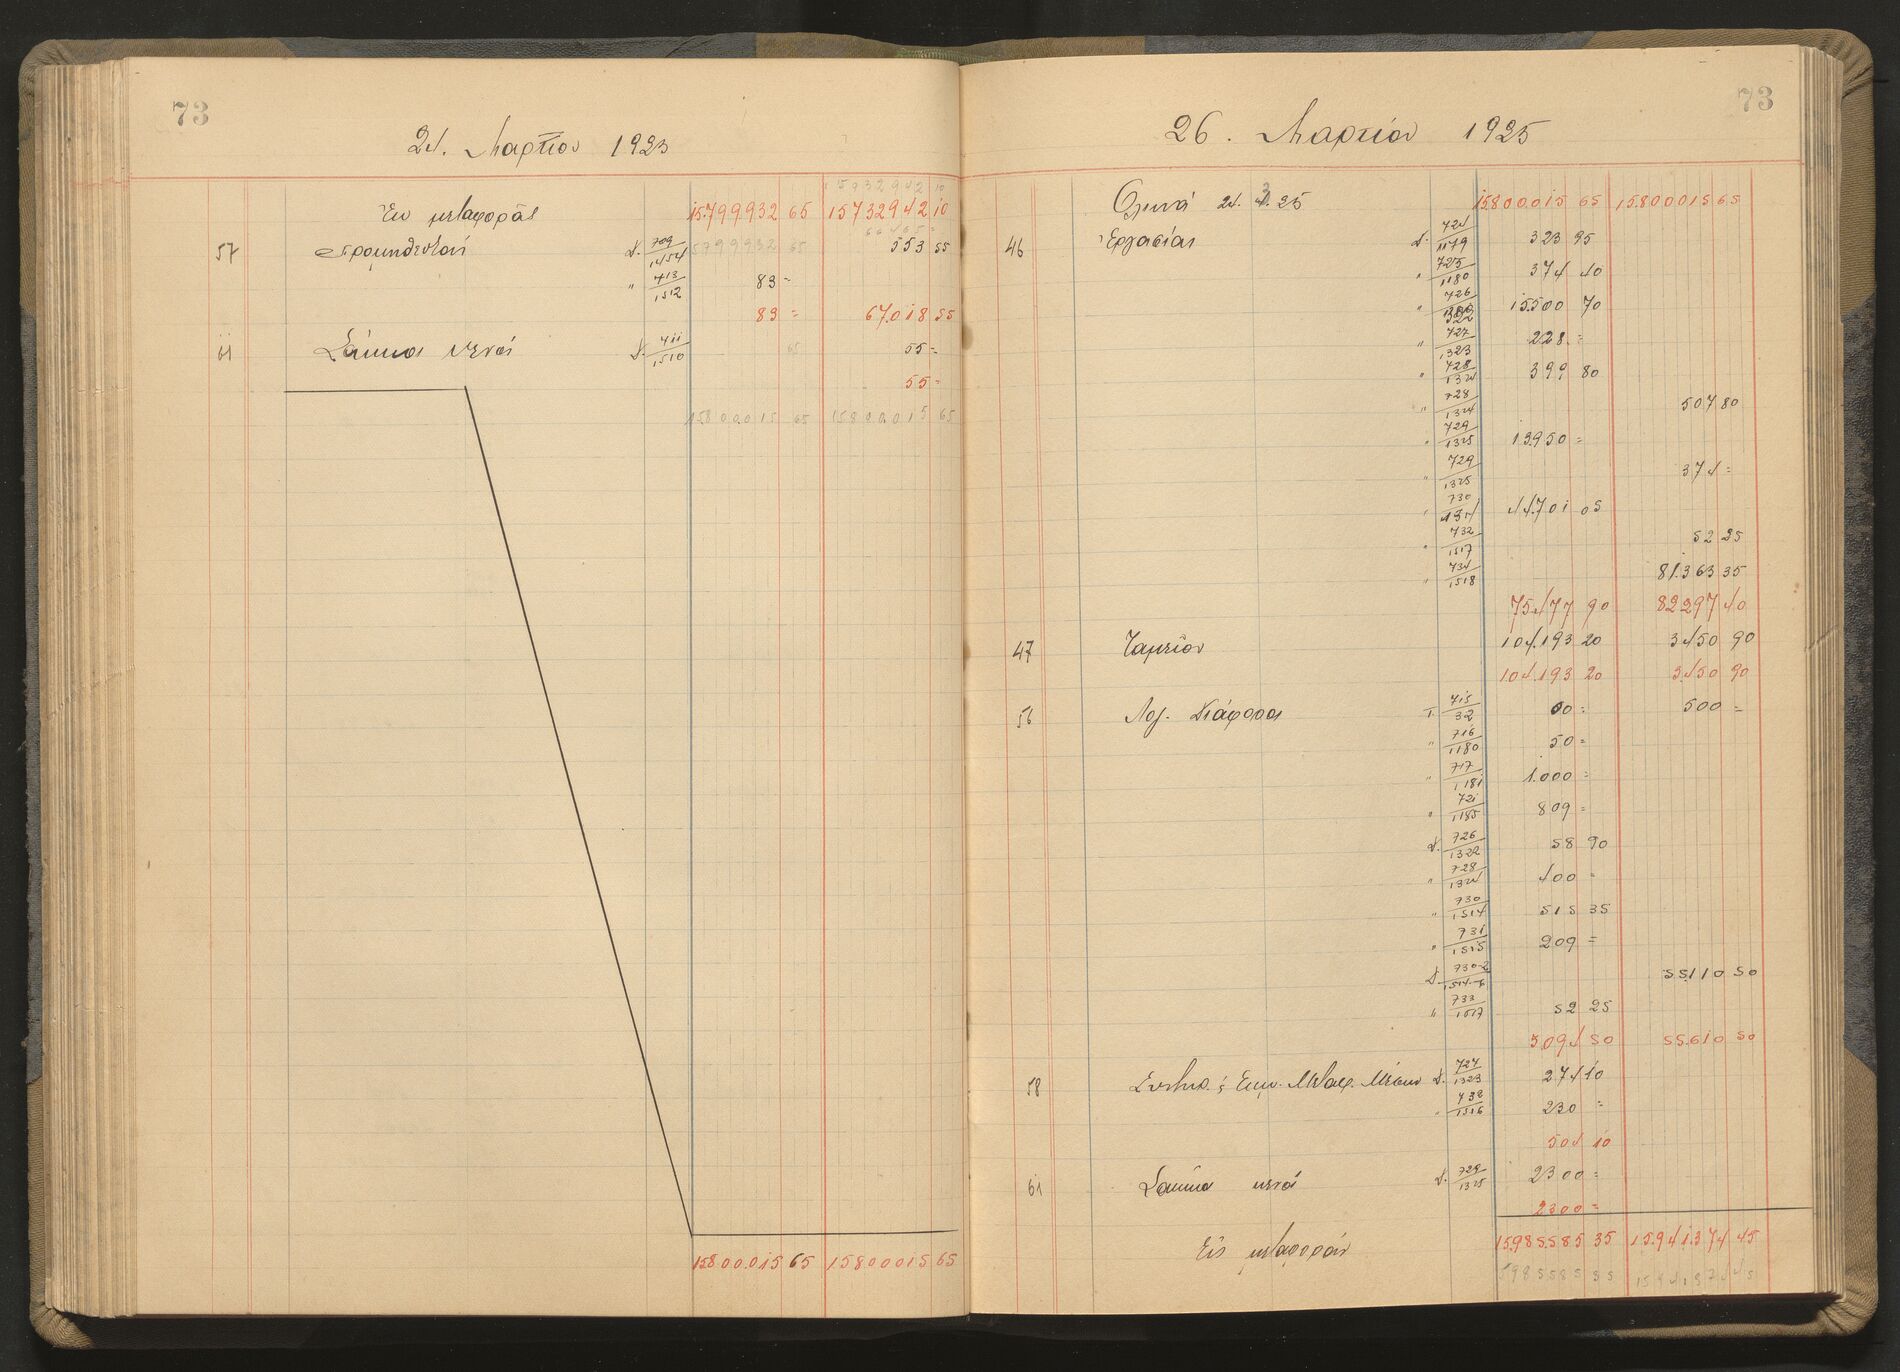 73
24. Μαρτίου 1925
15932942 10
Ἐκ μεταφορᾶς 15.799932 65 15732942 10
57 Προμηθευταί Δ. 709/1454 5799932 65 553 55
" 713/1512 83 =
83 = 67.018 55
61 Σάκκοι κενοί Δ. 711/1510 55 =
55 =
15800.015 65 15800.015 65
15800.015 65 15800015 65
73
26. Μαρτίου 1925
Ὁλικά 24.3.25 15.800.015 65 15.800015 65
46 Ἐργασίαι Δ. 724/1179 323 95
" 725/1180 374 40
" 726/1322 15.500 70
" 727/1323 228. =
" 728/1324 399 80
" 728/1324 507 80
" 729/1325 13.950 =
" 729/1325 374 =
" 730 44.701 05
" 732/1517 52 25
" 734/1518 81.363 35
75477 90 82297 40
47 Ταμεῖον 104.193 20 3450 90
104.193 20 3.450 90
56 Λογ. Διάφοροι Τ. 715/32 500 =
" 716/1180 50 =
" 717/1181 1.000 =
" 721/1185 809 =
Δ. 726/1322 58 90
" 728/1324 400 =
" 730/1514 515 35
" 731/1515 209 =
Δ. 730-2/1514-6 55.110 50
" 733/1517 52 25
3.094 50 55.610 50
58 Συντηρ. & Ἐπισκ. Μεταφ. Μέσων Δ. 727/1323 274 10
" 732/1516 230 =
504 10
61 Σάκκοι κενοί Δ. 729/1325 2300 =
2300 =
Εἰς μεταφοράν 15.985.585 35 15.941.374 45
5985585 35 15941374 45